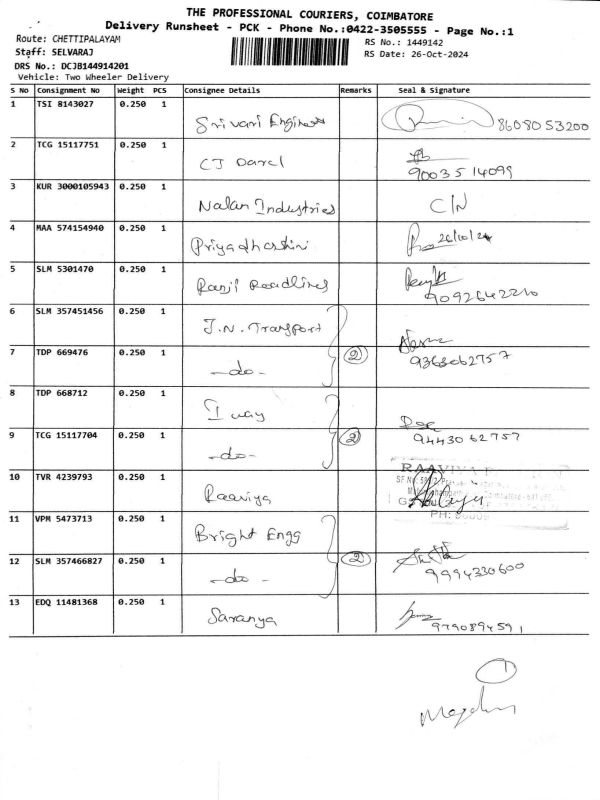 THE PROFESSIONAL COURIERS, COIMBATORE
Delivery Runsheet - PCK - Phone No.:0422-3505555 - Page No.:1
Route: CHETTIPALAYAM RS No.: 1449142
Staff: SELVARAJ RS Date: 26-Oct-2024
DRS No.: DCJB144914201
Vehicle: Two Wheeler Delivery
S No Consignment No Weight PCS Consignee Details Remarks Seal & Signature
1 TSI 8143027 0.250 1 Srivari Engineers 8608053200
2 TCG 15117751 0.250 1 CJ Darcl 9003514099
3 KUR 3000105943 0.250 1 Nalan Industries C/N
4 MAA 574154940 0.250 1 Priyadharshini 26/10/24
5 SLM 5301470 0.250 1 Ranji Roadlines 9092642210
6 SLM 357451456 0.250 1 J.N. Transport
7 TDP 669476 0.250 1 -do- 2 9363062757
8 TDP 668712 0.250 1 I way
9 TCG 15117704 0.250 1 -do- 2 9443062757
10 TVR 4239793 0.250 1 Raaviya RAAVIYA
11 VPM 5473713 0.250 1 Bright Engg
12 SLM 357466827 0.250 1 -do- 2 9994330600
13 EDQ 11481368 0.250 1 Saranya 9790894591
1